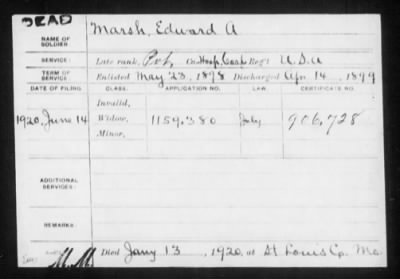 DEAD
NAME OF SOLDIER: Marsh, Edward A
SERVICE: Late rank, Pvt, Co. Hosp. Corps Reg't U.S.A
TERM OF SERVICE: Enlisted May 23, 1898 Discharged Apr. 14, 1899
DATE OF FILING. CLASS. APPLICATION NO. LAW. CERTIFICATE NO.
Invalid,
1920, June 14 Widow, 1159,380 906,728
Minor,
ADDITIONAL SERVICES:
REMARKS:
Died Jany 13, 1920, at St Louis Co. Mo.